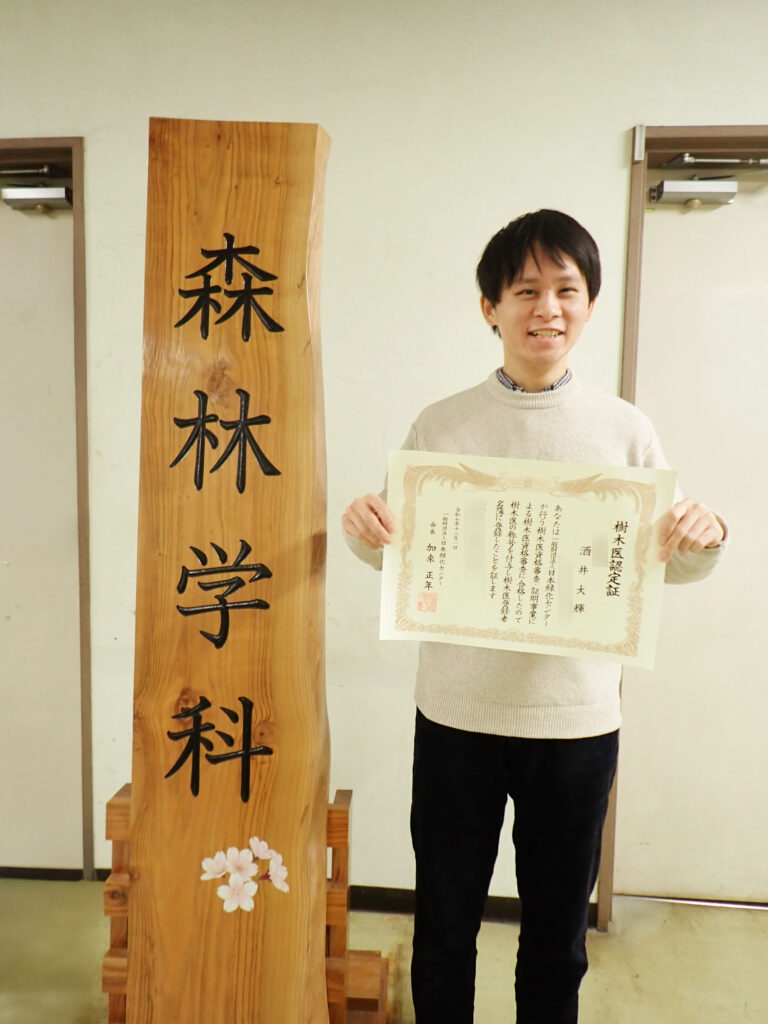 森林学科
樹木医認定証
酒井大輝
あなたは一般財団法人日本緑化センター
が行う樹木医資格審査・証明事業に
よる樹木医資格審査に合格したので
樹木医の称号を付与し樹木医登録者
名簿に登録したことを証します
一般財団法人日本緑化センター
会長 加来正年